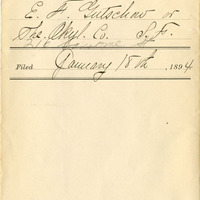 E. F. Gutschow or
The. Akyl. Co. S. F.
Filed January 18th, 1894